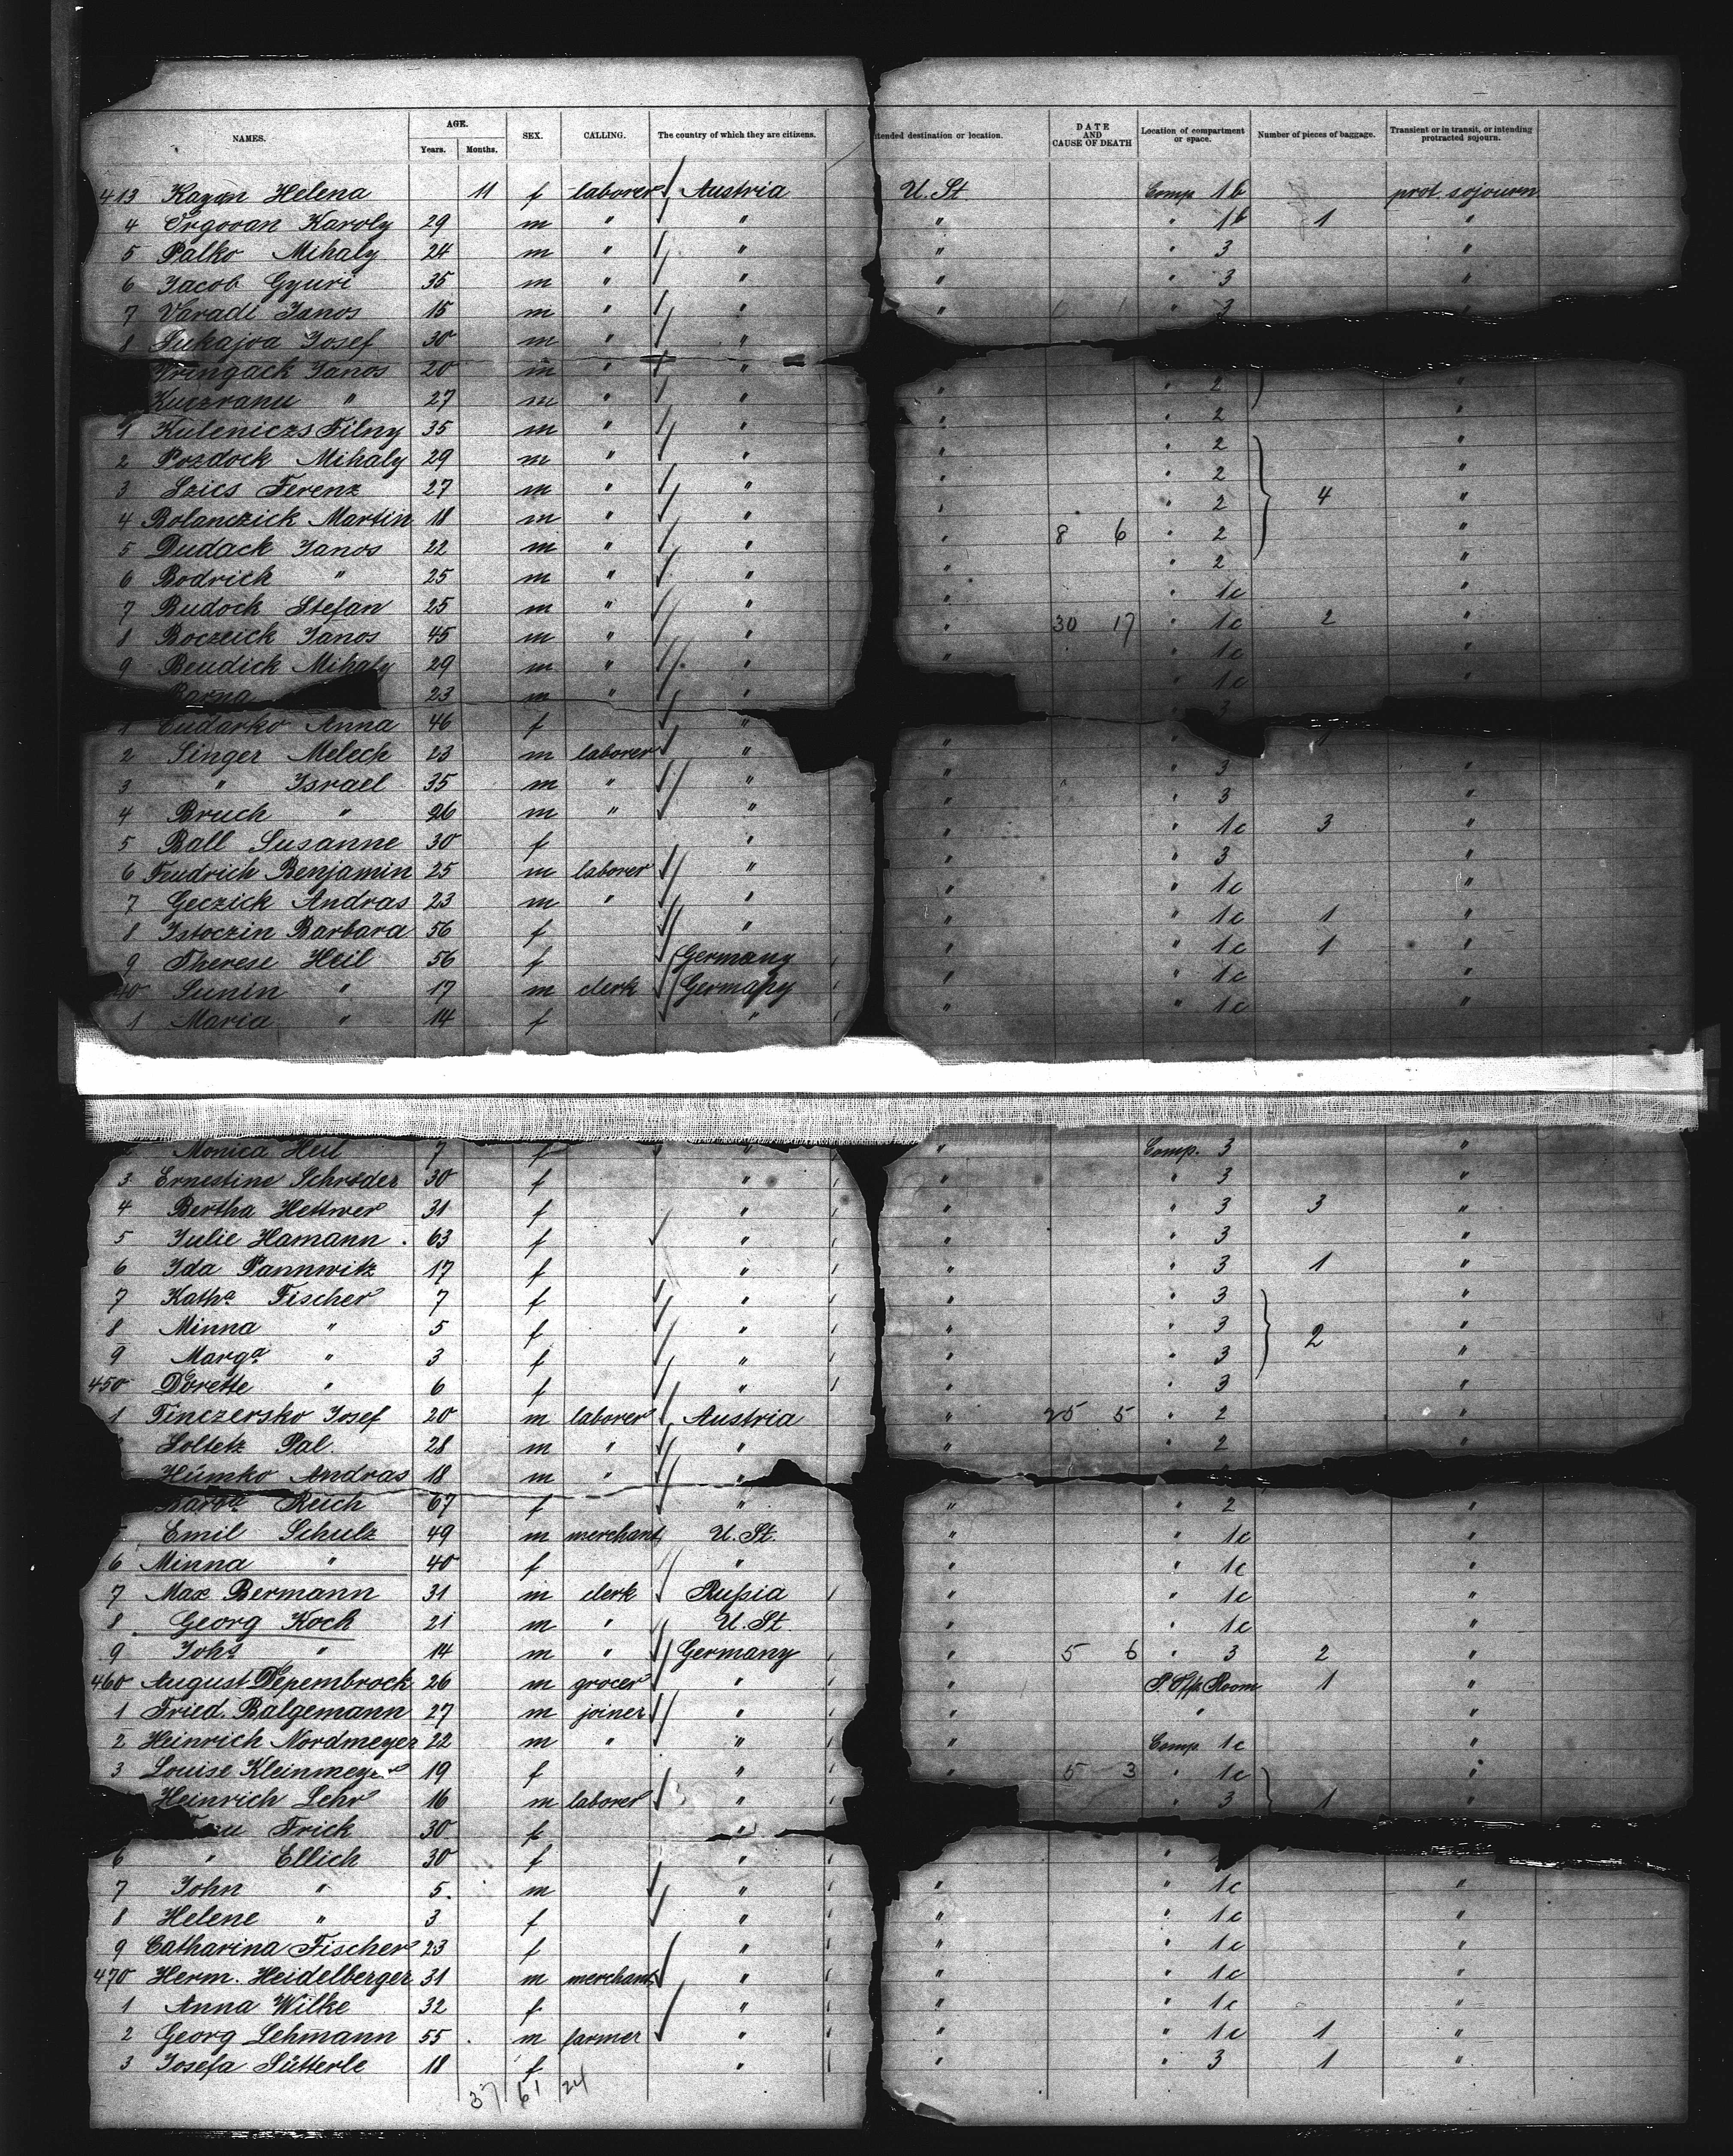 NAMES. AGE. Years. Months. SEX. CALLING. The country of which they are citizens. tended destination or location. DATE AND CAUSE OF DEATH Location of compartment or space. Number of pieces of baggage. Transient or in transit, or intending protracted sojourn.
413 Kazan Helena 11 f laborer Austria U. St. Comp. 1b prot. sojourn
4 Orgovan Karoly 29 m " " " " 1b 1 "
5 Palko Mihaly 24 m " " " " 3 "
6 Jacob Gyuri 35 m " " " " 3 "
7 Varadi Janos 15 m " " " " 3 "
8 Jukajoa Josef 30 m " "
Janos 20 m " " " 2 "
" 27 m " " " " 2 "
1 Kuleniczs Filny 35 m " " " " 2 "
2 Pozdock Mihaly 29 m " " " " 2 "
3 Szics Ferenz 27 m " " " " 2 4 "
4 Bolanczick Martin 18 m " " " 8 6 " 2 "
5 Dudack Janos 22 m " " " " 2 "
6 Bodrick " 25 m " " " " 1c "
7 Budock Stefan 25 m " " " 30 17 " 1c 2 "
8 Boczeick Janos 45 m " " " " 1c "
9 Beudick Mihaly 29 m " " " " 1c "
Barna 23 m " " 3
1 Cudarko Anna 46 f " " "
2 Singer Melech 23 m laborer " " " 3 "
3 " Israel 35 m " " " " 3 "
4 Bruch " 26 m " " " " 1c 3 "
5 Ball Susanne 30 f " " " 3 "
6 Frudrich Benjamin 25 m laborer " " " 1c "
7 Geczick Andras 23 m " " " " 1c 1 "
8 Istoczin Barbara 56 f " " " 1c 1 "
9 Therese Heil 56 f Germany " " 1c "
40 " 17 m clerk Germany " " 1c "
1 Maria " 14 f "
2 Monica Heil 7 f " " Comp. 3 "
3 Ernestine Schröder 30 f " " " 3 "
4 Bertha Hettwer 31 f " " " 3 3 "
5 Julie Hamann 63 f " " " 3 "
6 Ida Pannwitz 17 f " " " 3 1 "
7 Katha Fischer 7 f " " " 3 "
8 Minna " 5 f " " " 3 2 "
9 Marga " 3 f " " " 3 "
450 Dorette " 6 f " " " 3 "
1 Tinczersko Josef 20 m laborer Austria " 25 5 " 2 "
Soltetz Pal. 28 m " " " " 2 "
Hümko Andras 18 m " "
Barba Reich 67 f " " " 2 "
Emil Schulz 49 m merchant U. St. " " 1c "
6 Minna " 40 f " " " 1c "
7 Max Bermann 31 m clerk Rußia " " 1c "
8 Georg Koch 21 m " U. St. " " 1c "
9 Johs " 14 m " Germany " 5 6 " 3 2 "
460 August Depembrock 26 m grocer " " P. Off. Room 1 "
1 Fried. Balgemann 27 m joiner " " " "
2 Heinrich Nordmeyer 22 m " " " Comp. 1c "
3 Louise Kleinmeyer 19 f " " 5 3 " 1c "
Heinrich Lehr 16 m laborer " " 3 1 "
Frick 30 f "
6 " Ellich 30 f " "
7 John " 5 m " " " 1c "
8 Helene " 3 f " " " 1c "
9 Catharina Fischer 23 f " " " 1c "
470 Herm. Heidelberger 31 m merchant " " " 1c "
1 Anna Wilke 32 f " " " 1c "
2 Georg Lehmann 55 m farmer " " " 1c 1 "
3 Josefa Sütterle 18 f " " " 3 1 "
37 61 24